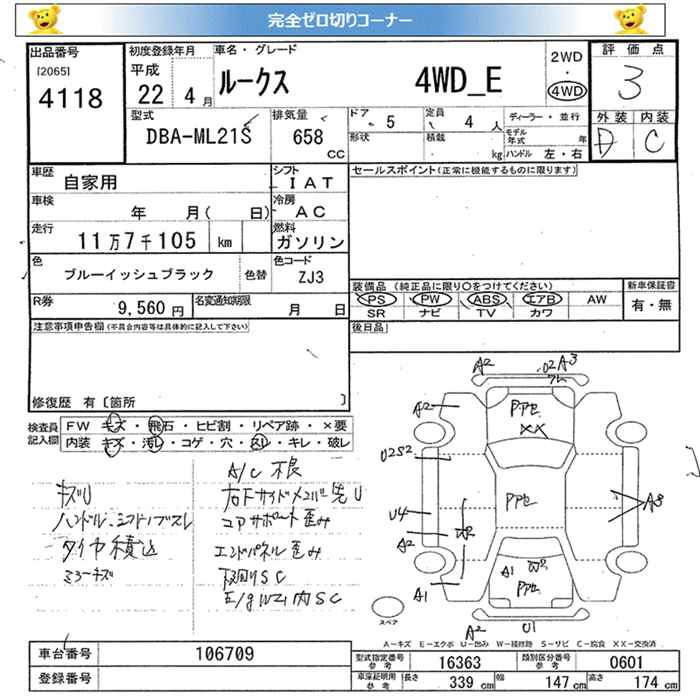 完全ゼロ切りコーナー
出品番号
[2065]
4118
初度登録年月
平成
22年 4月
車名・グレード
ルークス 4WD_E
2WD
・
4WD
評価点
3
外装 内装
D C
型式
DBA-ML21S
排気量
658
CC
ドア 5
形状
定員 4 人
積載 kg
ディーラー・並行
モデル年式 年
ハンドル 左・右
車歴 自家用
シフト IAT
車検 年 月( 日)
冷房 AC
走行 11万7千105 km
燃料 ガソリン
色 ブルーイッシュブラック
色替
色コード ZJ3
R券 9,560円
名変通知期限 月 日
セールスポイント(正常に機能するものに限ります)
装備品 (純正品に限り○をつけてください)
PS PW ABS エアB AW
SR ナビ TV カワ
新車保証書
有・無
後日品
注意事項申告欄(不具合内容等は具体的に記入して下さい)
修復歴 有〔箇所 〕
検査員記入欄
FW キズ・飛石・ヒビ割・リペア跡・×要
内装 キズ・汚レ・コゲ・穴・スレ・キレ・破レ
キズU
ハンドル・シフトノブスレ
タイヤ積込
ミラーキズ
A/C 不良
右下サイドメンバ先U
コアサポート歪み
エンドパネル歪み
下廻りSC
A2
A3
A2
U2S2
U4
A2
A1
Pアセ
XX
Pアセ
W2
A3
A1 W2
Pアセ
A2
U1
スペア
A－キズ E－エクボ U－凹み W－補修跡 S－サビ C－腐食 XX－交換済
車台番号 106709
登録番号
型式指定番号 参考 16363
類別区分番号 参考 0601
車庫証明用 参考 長さ 339cm 幅 147cm 高さ 174cm